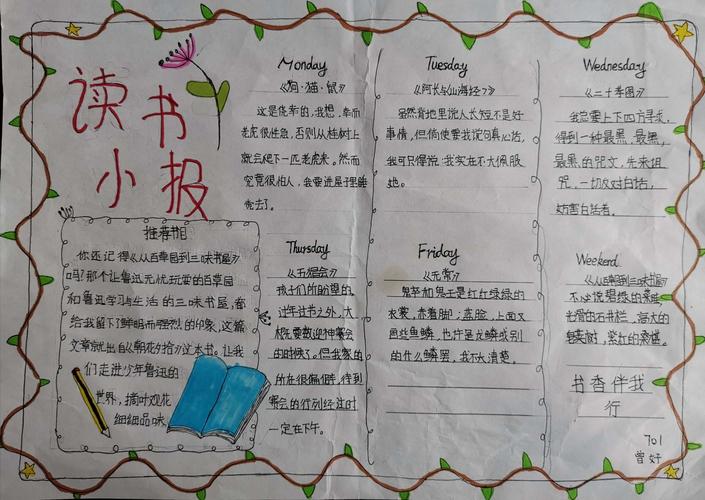 读书
小报
推荐书目
你还记得《从百草园到三味书屋》
吗?那个让鲁迅无忧玩耍的百草园
和鲁迅学习与生活的三味书屋,都
给我留下了鲜明而强烈的印象,这篇
文章就出自《朝花夕拾》这本书。让我
们走进少年鲁迅的
世界,摘叶观花
细细品味
Monday
《狗·猫·鼠》
这是侥幸的,我想,幸而
老虎很性急,否则从桂树上
就会爬下一匹老虎来。然而
究竟很怕人,我要进屋子里睡
觉去了。
Tuesday
《阿长与山海经》
虽然背地里说人长短不是好
事情,但倘使要我说句真心话,
我可只得说:我实在不大佩服
她。
Wednesday
《二十孝图》
我总要上下四方寻求,
得到一种最黑,最黑,
最黑的咒文,先来诅
咒,一切反对白话,
妨害白话者。
Thursday
《五猖会》
孩子们所盼望的,
过年过节之外,大
概要数迎神赛会
的时候了。但我家的
所在很偏僻,待到
赛会的行列经过时
一定在下午。
Friday
《无常》
鬼卒和鬼王是红红绿绿的
衣裳,赤着脚;蓝脸,上面又
画些鱼鳞,也许是龙鳞或别
的什么鳞罢,我不大清楚。
Weekend
《从百草园到三味书屋》
不必说碧绿的菜畦,
光滑的石井栏,高大的
皂荚树,紫红的桑椹。
书香伴我
行
701